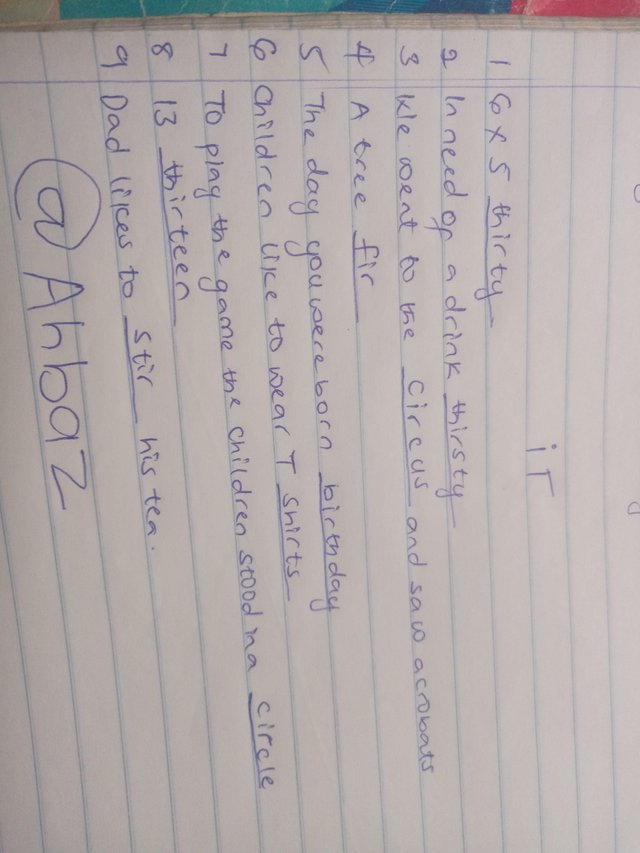 ir
1 6 x 5 thirty
2 In need of a drink thirsty
3 We went to the circus and saw acrobats
4 A tree fir
5 The day you were born birthday
6 Children like to wear T shirts
7 To play the game the children stood in a circle
8 13 thirteen
9 Dad likes to stir his tea.
@Ahbaz